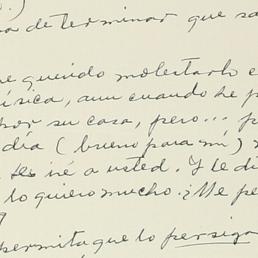 .)
a determinar que sa
e querido molestarlo e
ísica, aun cuando he p
por su casa, pero... p
día (bueno para mí) s
iré a usted. Y le di
lo quiero mucho. ¿Me pe
?
permita que lo persiga